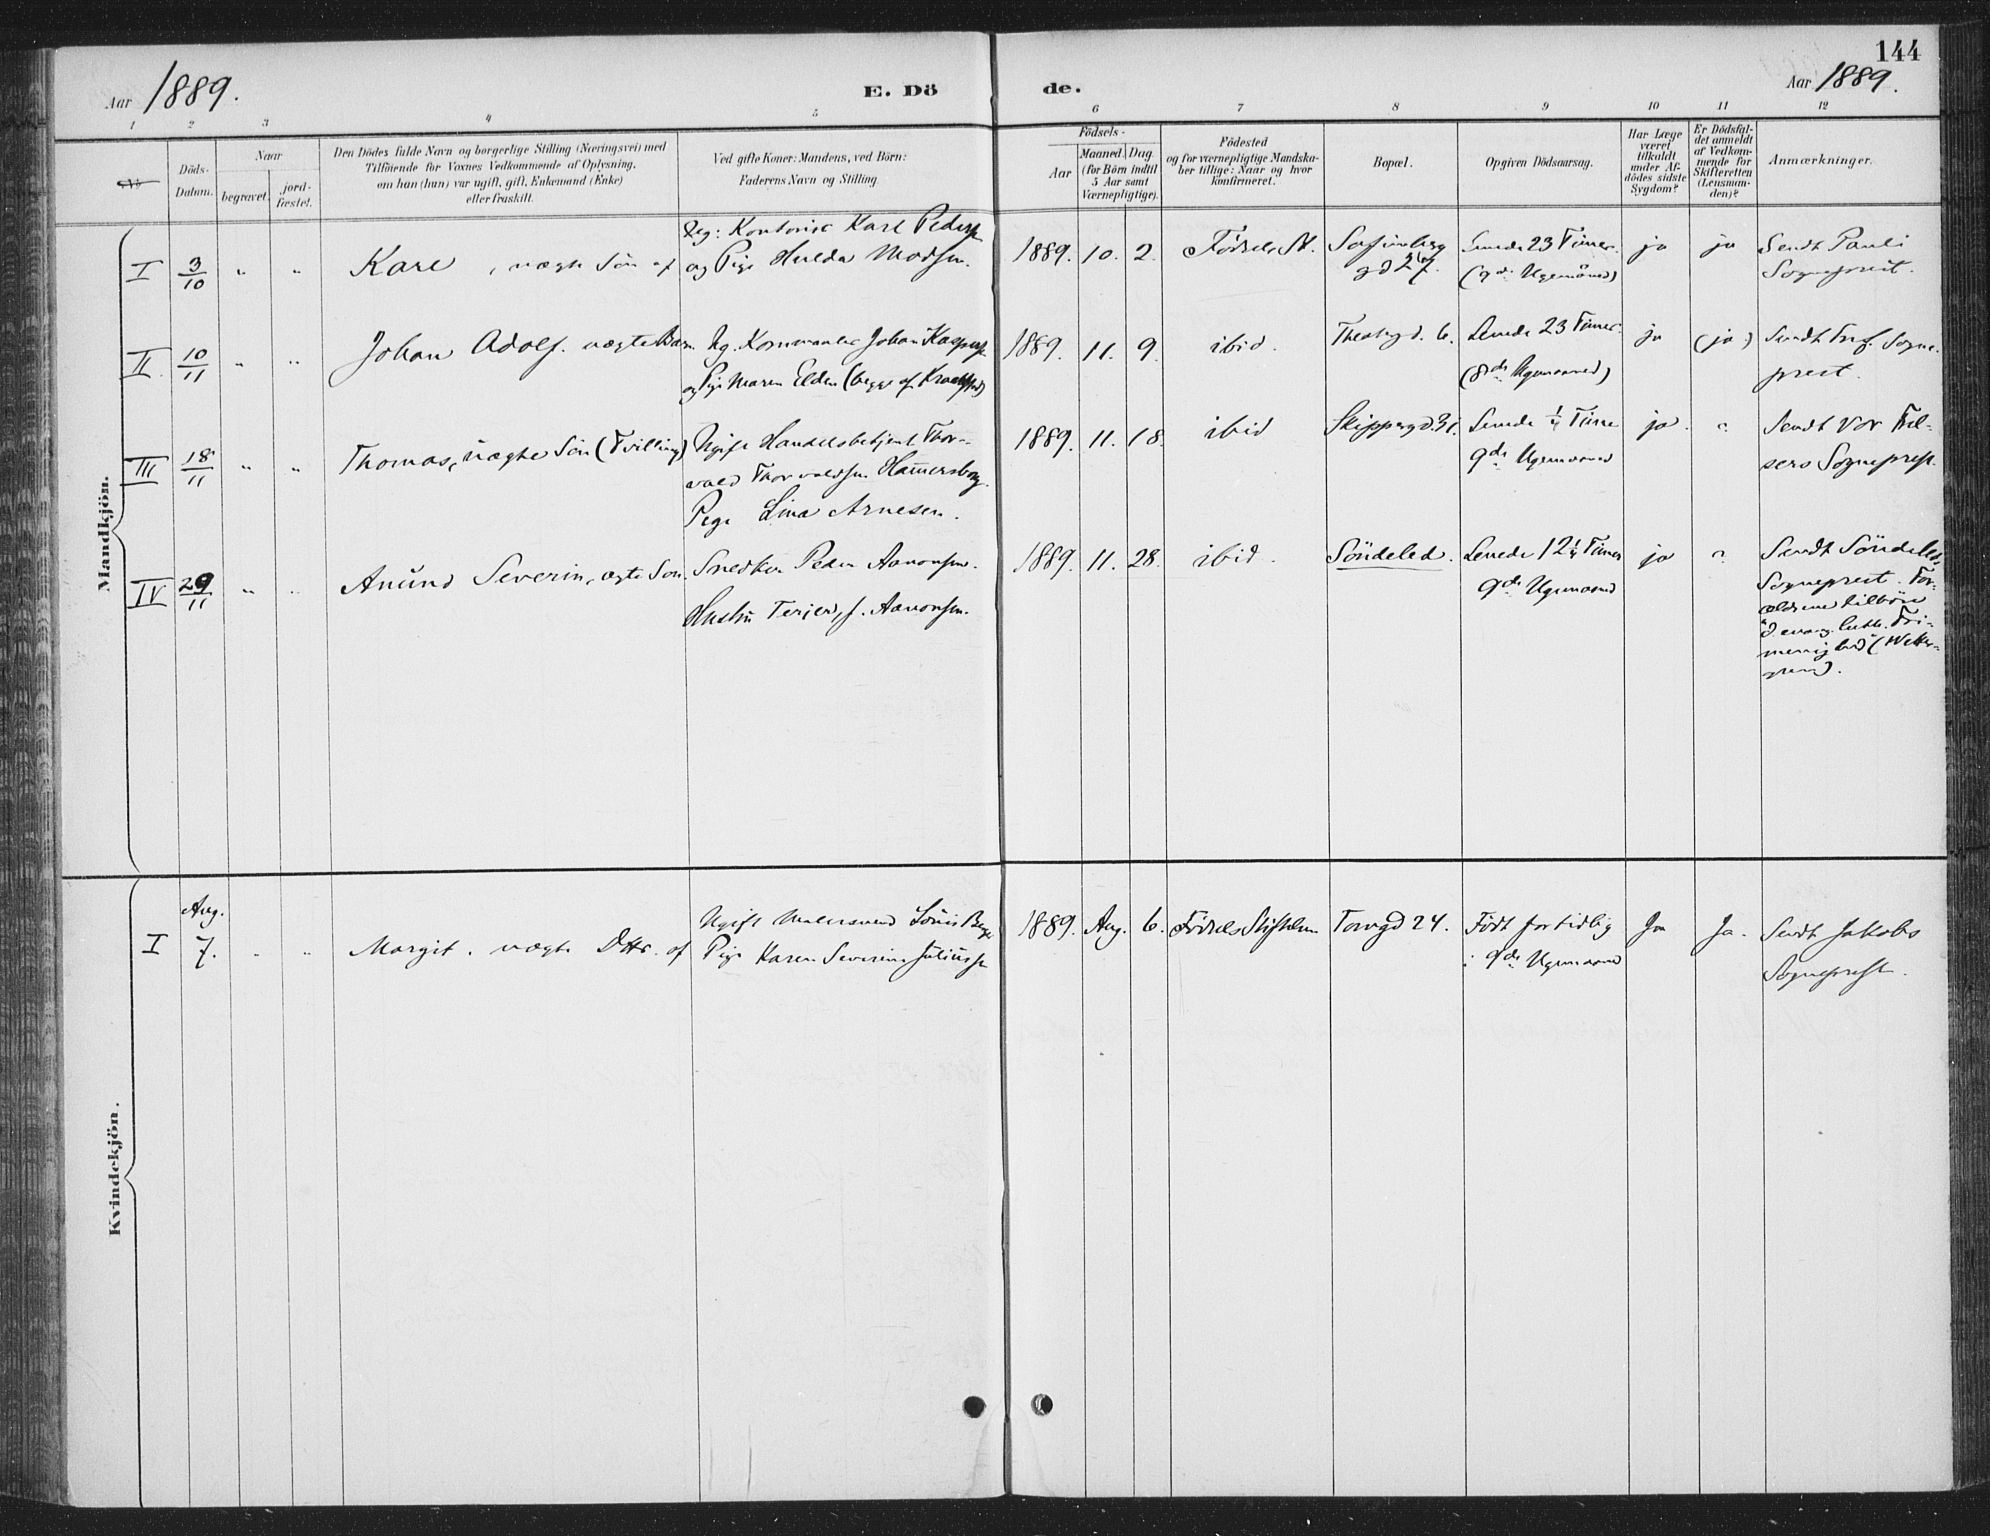 144
Aar 1889.
E. Dö
de.
Aar 1889.
1 2 3 4 5 6 7 8 9 10 11 12
No
Döds-
Datum.
Naar
begravet.
jord-
fæstet.
Den Dödes fulde Navn og borgerlige Stilling (Næringsvei) med
Tilföiende for Voxnes Vedkommende af Oplysning,
om han (hun) var ugift, gift, Enkemand (Enke)
eller fraskilt.
Ved gifte Koner: Mandens, ved Börn:
Faderens Navn og Stilling.
Födsels-
Aar
Maaned. Dag.
(for Börn indtil
5 Aar samt
Værnepligtige).
Födested
og for værnepligtige Mandska-
ber tillige: Naar og hvor
konfirmeret.
Bopæl.
Opgiven Dödsaarsag.
Har Læge
været
tilkaldt
under Af-
dödes sidste
Sygdom?
Er Dödsfal-
det anmeldt
af Vedkom-
mende for
Skifteretten
(Lensman-
den)?
Anmærkninger.
Mandkjön.
I 3/10 " " Karl, uægte Sön af
Ug: Kontorist Karl Peders
og Pige Hulda Madsen.
1889. 10. 2. Födsels St.
gd 27.
Levede 23 Timer
Ugemaaned)
ja ja
Sendt Pauli
Sogneprest.
II 10/11 " " Johan Adolf. uægte Barn
Ug. Johan Kaspers
og Pige Maren Elden (begge af
1889. 11. 9. ibid. Theatergd. 6.
Levede 23 Timer.
(8de Ugemaaned)
ja (ja)
Sendt Tref. Sogne-
prest.
III 18/11 " " Thomas, uægte Sön (Tvilling)
Ugift Handelsbetjent Thor-
vald Thorvaldsen Hamersborg.
Pige Lina Arnesen.
1889. 11. 18. ibid Skippergd. 31.
Levede 1/4 Time
9de Ugemaaned
ja. "
Sendt Vor Frel-
sers Sogneprest.
IV 29/11 " " Anund Severin, ægte Sön.
Snedker Peder Aanonsen.
Hustru Terjer, f. Aanonsen.
1889. 11. 28. ibid. Söndeled.
Levede 12 1/4 Timer
9de Ugemaaned
ja "
Sendt Söndeleds
Sogneprest. For-
ældrene tilhöre
d. evang. luth. Fri-
menighed (Wetter-
gren).
Kvindekjön.
I Aug. 7. " " Margit. uægte Dtter. af
Ugift Malersvend Louis Berg
Pige Karen Severine Juliuss
1889. Aug. 6. Födsels Stiftelsen Torvgd 24.
Födt for tidlig
i 9de Ugemaaned
Ja Ja.
Sendt Jakobs
Sogneprest.